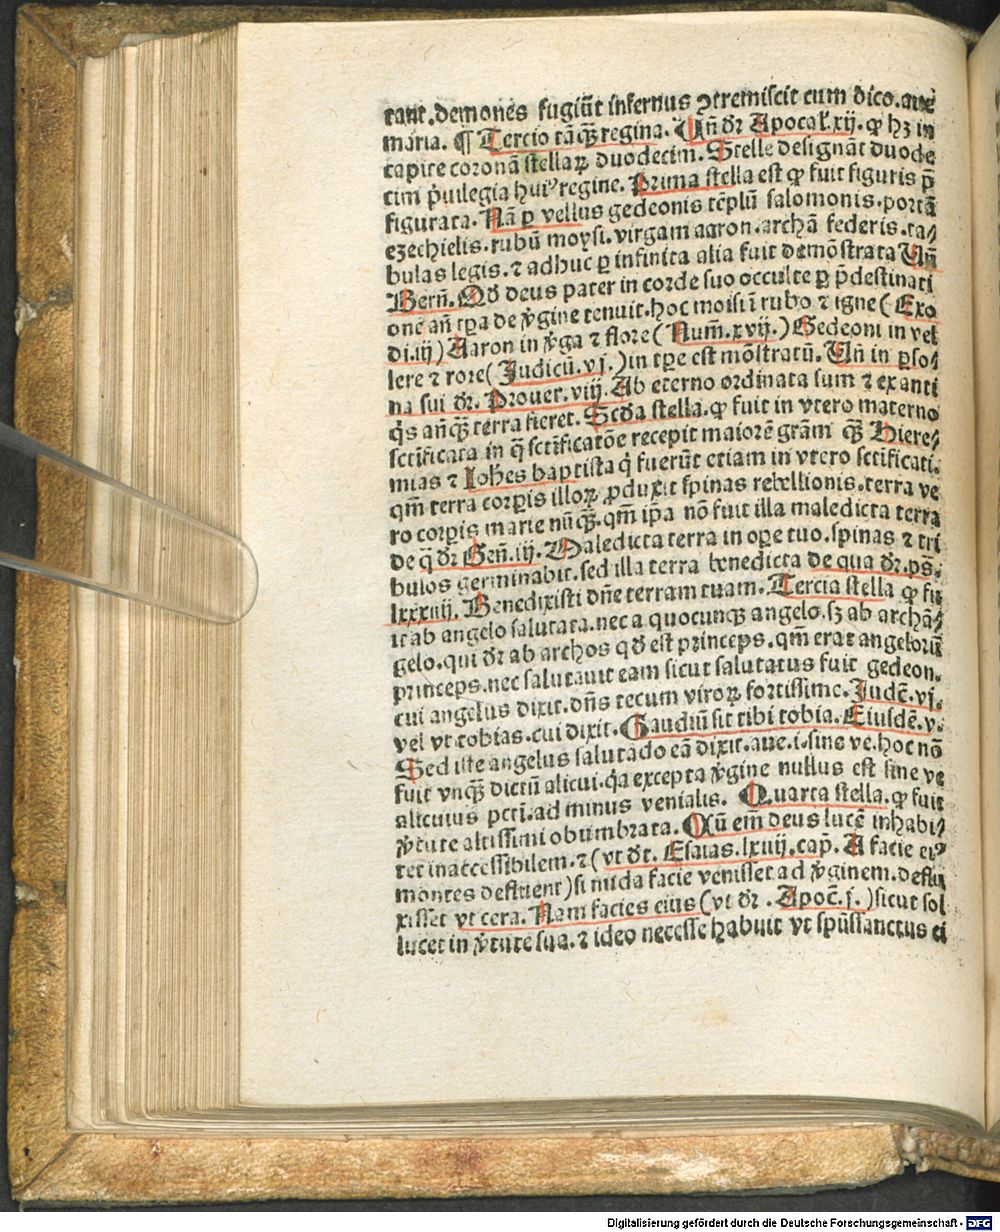 tant.demones fugiūt infernus ꝯtremiscit cum dico.aue
maria. ¶ Tercio tāꝗ̄ regina. Vn̄ dr̄ Apocal̄.xij. ꝙ hꝫ in
capite coronā stellaꝝ duodecim. Stelle designāt duode
cim p̄uilegia huiꝰ regine. Prima stella est ꝙ fuit figuris p̄
figurata. Nā ꝑ vellus gedeonis tēplū salomonis.portā
ezechielis.rubū moysi.virgam aaron.archā federis.ta/
bulas legis.⁊ adhuc ꝑ infinita alia fuit demōstrata Vn̄
Bern̄. Qd̄ deus pater in corde suo occulte ꝑ p̄destinati
onē an̄ tꝑa de v̄gine tenuit.hoc moisi ī rubo ⁊ igne (Exo
di.iij) Aaron in v̄ga ⁊ flore (Num̄.xvij.) Gedeoni in vel
lere ⁊ rore (Judicū.vj.) in tꝑe est mōstratū. Vn̄ in ꝑso/
na sui dr̄. Prouer.viij. Ab eterno ordinata sum ⁊ ex anti
q̄s an̄ꝗ̄ terra fieret. Scd̄a stella.ꝙ fuit in vtero materno
sctīficata in q̄ sctīficatōe recepit maiorē grām ꝗ̄ Hiere/
mias ⁊ Iohēs baptista q̇ fuerūt etiam in vtero sctīficati.
qm̄ terra corꝑis illoꝝ ꝓduxit spinas rebellionis.terra ve
ro corꝑis marie nūꝗ̄.qm̄ ip̄a nō fuit illa maledicta terra
de q̄ dr̄ Gen̄.iij. Maledicta terra in oꝑe tuo.spinas ⁊ tri
bulos germinabit.sed illa terra benedicta de qua dr̄.ps̄.
lxxxiiij. Benedixisti dn̄e terram tuam. Tercia stella ꝙ fu
it ab angelo salutata.nec a quocunꝗ angelo.sꝫ ab archā/
gelo.qui dr̄ ab archos qd̄ est princeps.qm̄ erat angelorū
princeps.nec salutauit eam sicut salutatus fuit gedeon.
cui angelus dixit.dn̄s tecum viroꝝ fortissime. Judē.vj.
vel vt tobias.cui dixit. Gaudiū sit tibi tobia. Eiusdē.v.
Sed iste angelus salutādo eā dixit.aue.i.sine ve.hoc nō
fuit vnꝗ̄ dictū alicui.q̇a excepta v̄gine nullus est sine ve
alicuius pctī.ad minus venialis. Quarta stella.ꝙ fuit
v̄tute altissimi obumbrata. Cū em̄ deus lucē inhabi/
tet inaccessibilem.⁊ (vt dr̄. Esaias.lxiiij.cap̄. A facie eiꝰ
montes defluent) si nuda facie venisset ad v̄ginem.deflu
xisset vt cera. Nam facies eius (vt dr̄. Apoc̄.j.) sicut sol
lucet in v̄tute sua.⁊ ideo necesse habuit vt spūssanctus ei
Digitalisierung gefördert durch die Deutsche Forschungsgemeinschaft - DFG